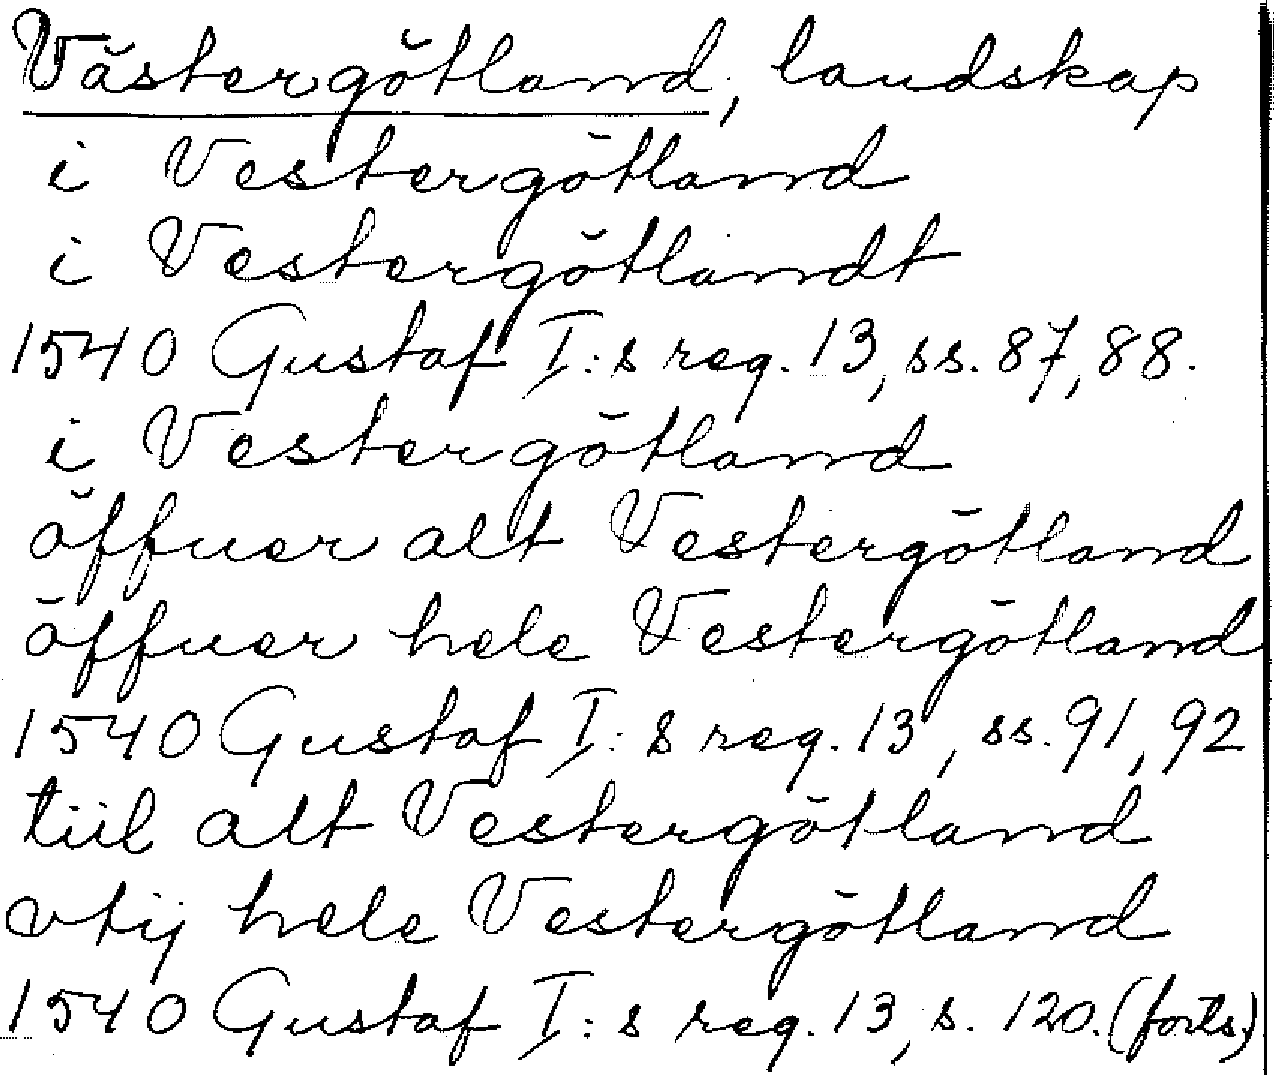 Västergötland, landskap
i Vestergötland
i Vestergötlandt
1540 Gustaf I:s reg. 13, ss. 87, 88.
i Vestergötland
öffuer alt Vestergötland
öffuer hele Vestergötland
1540 Gustaf I:s reg. 13, ss. 91, 92
tiil alt Vestergötland
vtij hele Vestergötland
1540 Gustaf I:s reg. 13, s. 120. (forts.)